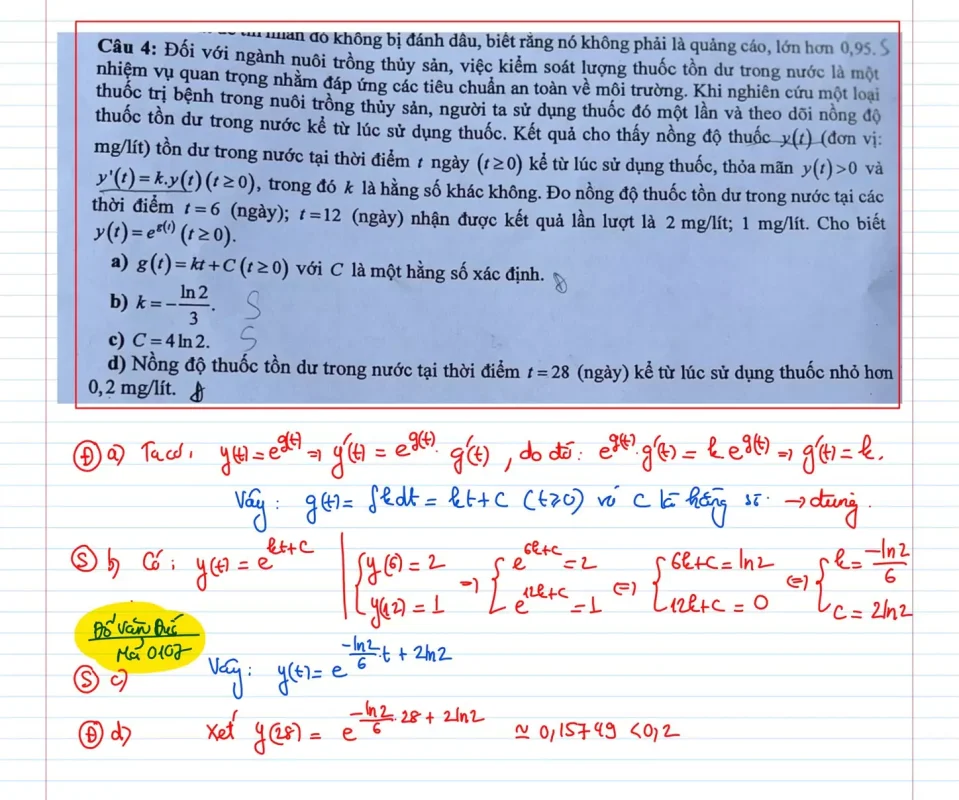 nhân đó không bị đánh dấu, biết rằng nó không phải là quảng cáo, lớn hơn 0,95. S
Câu 4: Đối với ngành nuôi trồng thủy sản, việc kiểm soát lượng thuốc tồn dư trong nước là một
nhiệm vụ quan trọng nhằm đáp ứng các tiêu chuẩn an toàn về môi trường. Khi nghiên cứu một loại
thuốc trị bệnh trong nuôi trồng thủy sản, người ta sử dụng thuốc đó một lần và theo dõi nồng độ
thuốc tồn dư trong nước kể từ lúc sử dụng thuốc. Kết quả cho thấy nồng độ thuốc y(t) (đơn vị:
mg/lít) tồn dư trong nước tại thời điểm t ngày (t≥0) kể từ lúc sử dụng thuốc, thỏa mãn y(t)>0 và
y'(t)=k.y(t)(t≥0), trong đó k là hằng số khác không. Đo nồng độ thuốc tồn dư trong nước tại các
thời điểm t=6 (ngày); t=12 (ngày) nhận được kết quả lần lượt là 2 mg/lít; 1 mg/lít. Cho biết
y(t)=e^{g(t)}(t≥0).
a) g(t)=kt+C(t≥0) với C là một hằng số xác định. Đ
b) k=-\frac{ln2}{3}. S
c) C=4ln2. S
d) Nồng độ thuốc tồn dư trong nước tại thời điểm t=28 (ngày) kể từ lúc sử dụng thuốc nhỏ hơn
0,2 mg/lít. Đ
Đ a) Ta có: y(t)=e^{g(t)} => y'(t)=e^{g(t)}.g'(t), do đó: e^{g(t)}.g'(t)=k e^{g(t)} => g'(t)=k.
Vậy: g(t)=∫kdt=kt+C (t≥0) với C là hằng số. → đúng.
S b) Có: y(t)=e^{kt+C} | { y(6)=2 ; y(12)=1 => { e^{6k+C}=2 ; e^{12k+C}=1 <=> { 6k+C=ln2 ; 12k+C=0 <=> { k=\frac{-ln2}{6} ; C=2ln2
Đỗ Văn Đức
Mã 0107
S c) Vậy: y(t)=e^{\frac{-ln2}{6}.t+2ln2}
Đ d) Xét y(28)=e^{\frac{-ln2}{6}.28+2ln2} ≃ 0,15749 <0,2